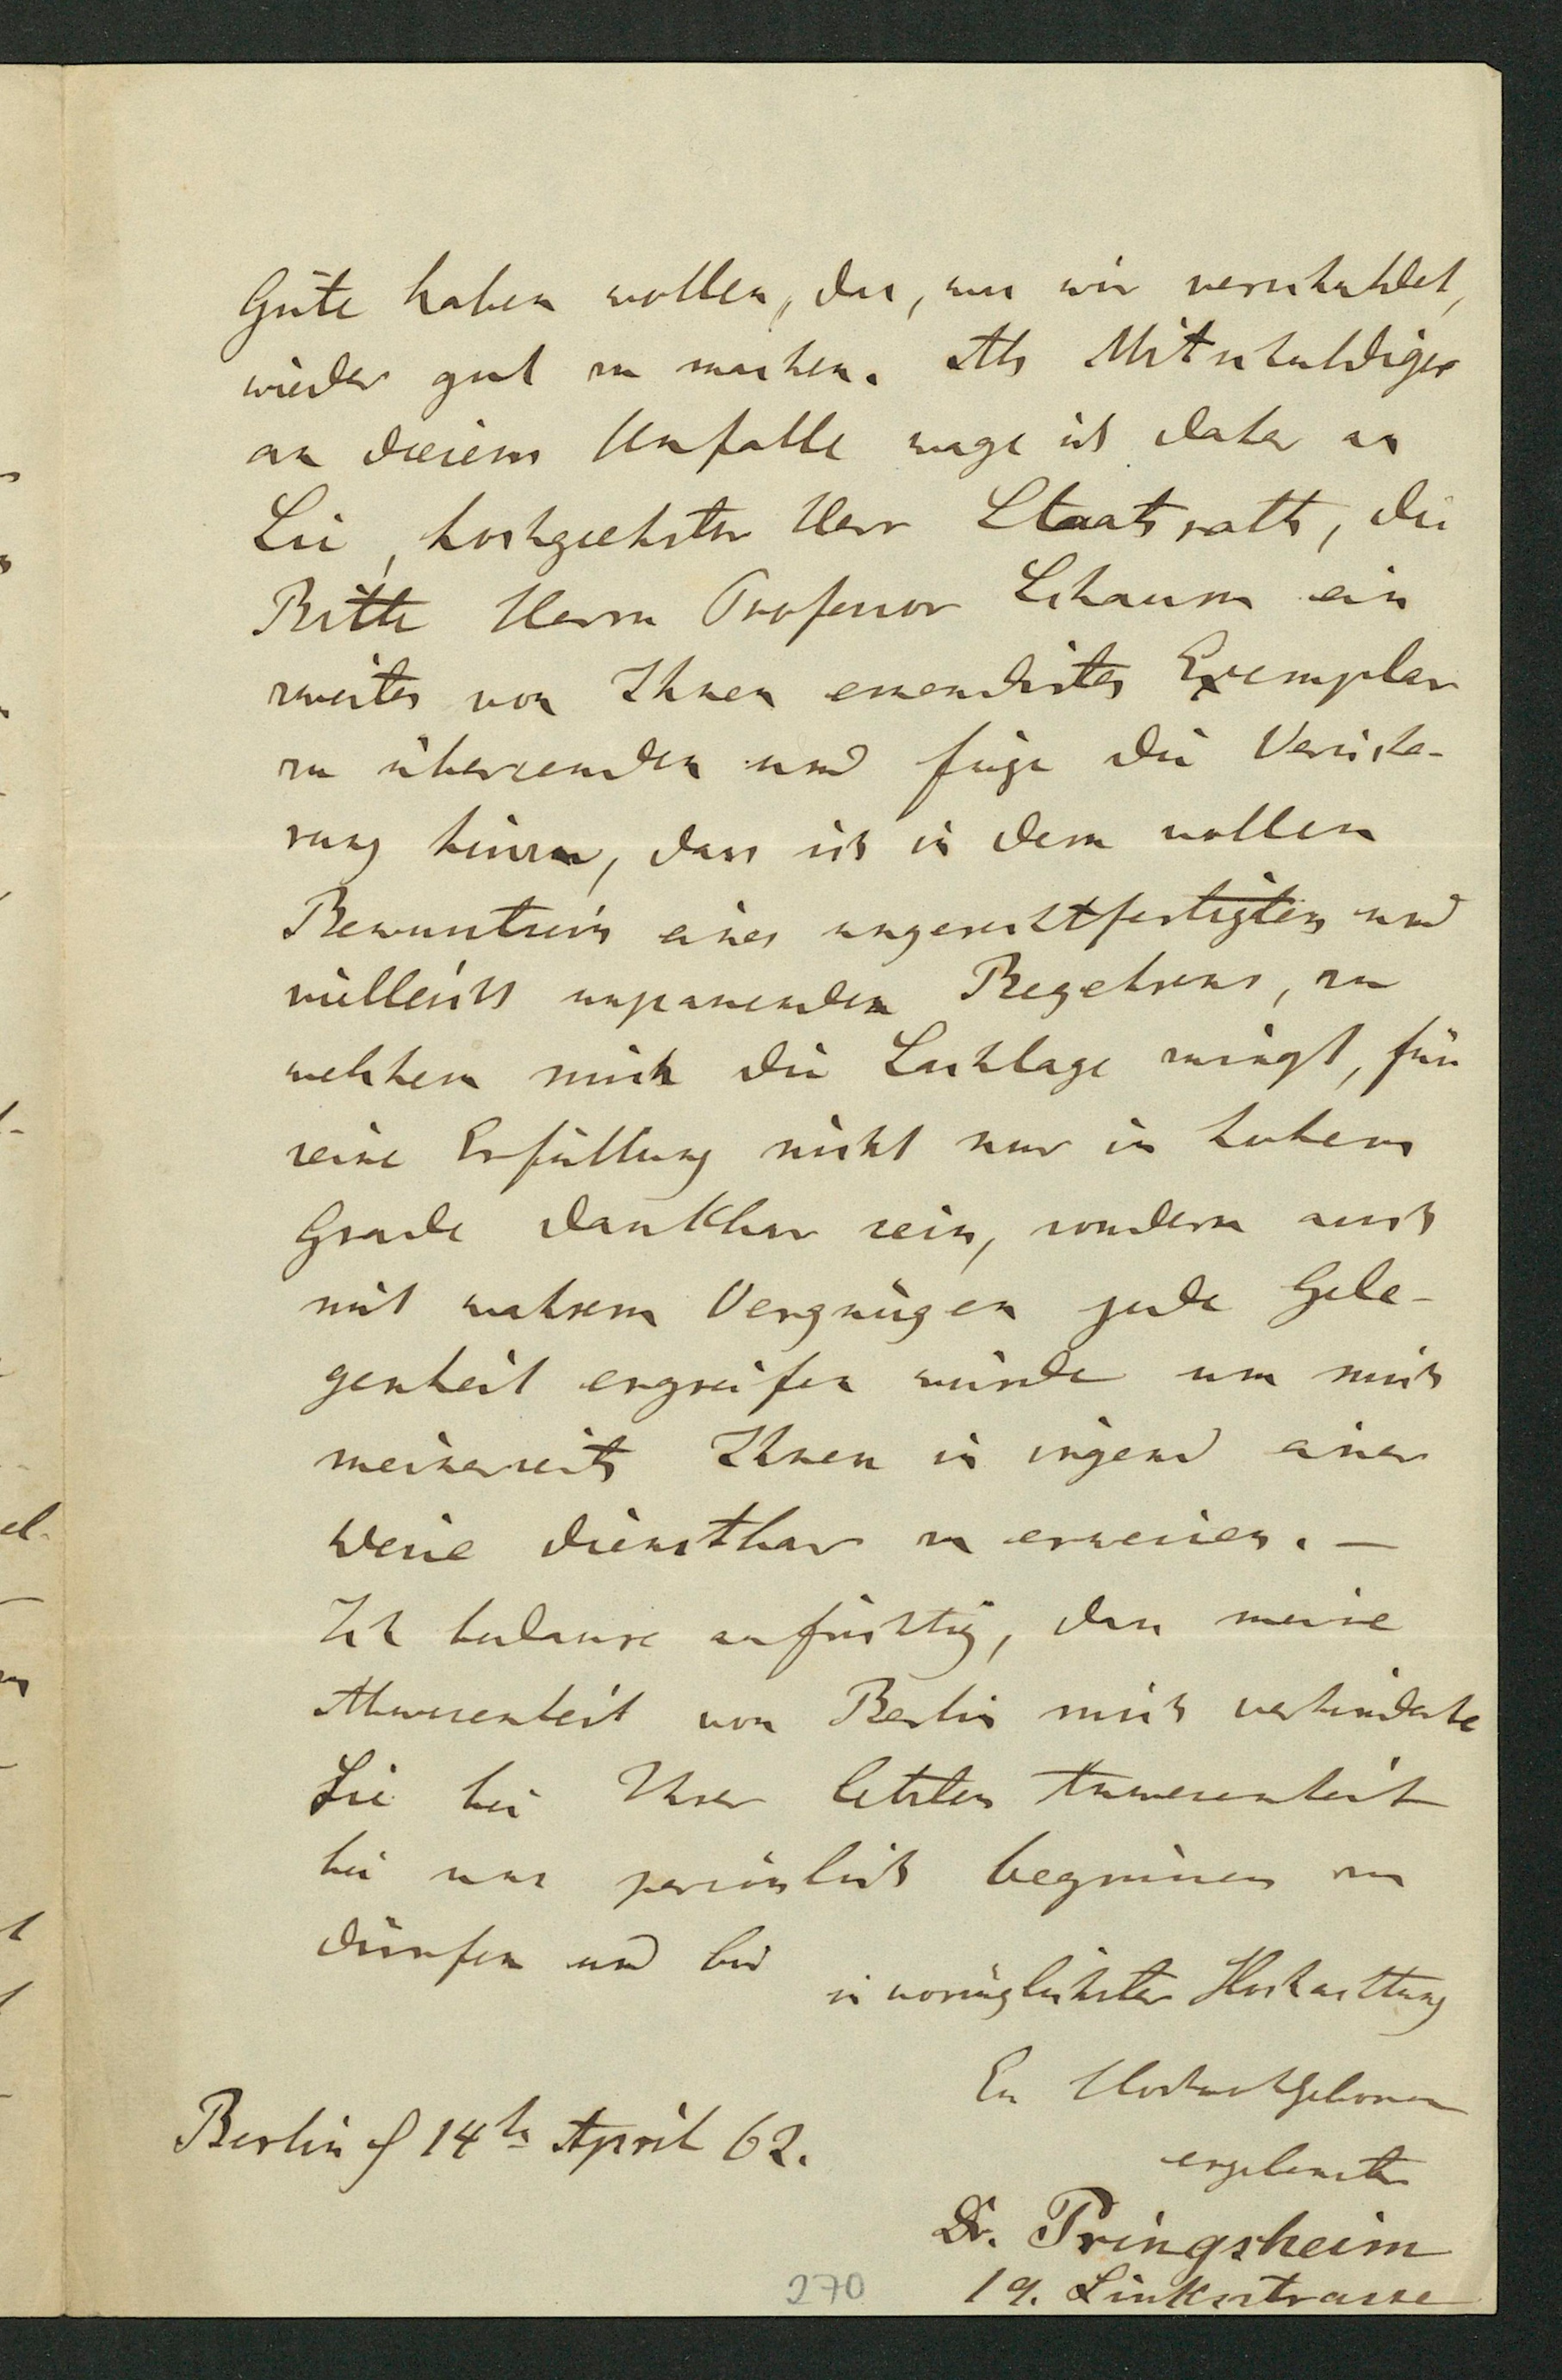 Güte haben wollen, das, was wir verschuldet,
wieder gut zu machen. Als Mitschuldiger
an diesem Unfalle wage ich daher an
Sie, hochgeehrter Herr Staatsrath, die
Bitte Herrn Professor Schaum ein
zweites von Ihnen emendirtes Exemplar
zu übersenden und füge die Versiche-
rung hinzu, dass ich in dem vollen
Bewusstsein eines ungerechtfertigten und
vielleicht unpassenden Begehrens, zu
welchem mich die Sachlage zwingt, für
seine Erfüllung nicht nur in hohem
Grade dankbar sein, sondern auch
mit wahrem Vergnügen jede Gele-
genheit ergreifen würde um mich
meinerseits Ihnen in irgend einer
Weise dienstbar zu erweisen. —
Ich bedaure aufrichtig, dass meine
Abwesenheit von Berlin mich verhinderte
Sie bei Ihrer letzten Anwesenheit
bei uns persönlich begrüssen zu
dürfen und bin
in vorzüglichster Hochachtung
Ew Hochwohlgeboren
ergebenster
Berlin d 14ten April 62.
Dr. Pringsheim
19. Linkstrasse
270